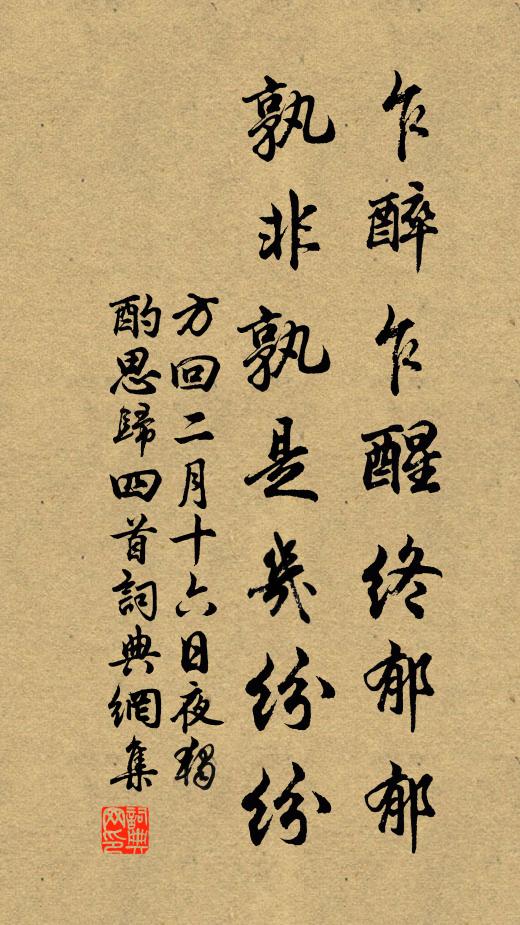 乍醉乍醒終郁郁
孰非孰是幾紛紛
方回二月十六日夜獨
酌思歸四首詞典網集
詞典
网印